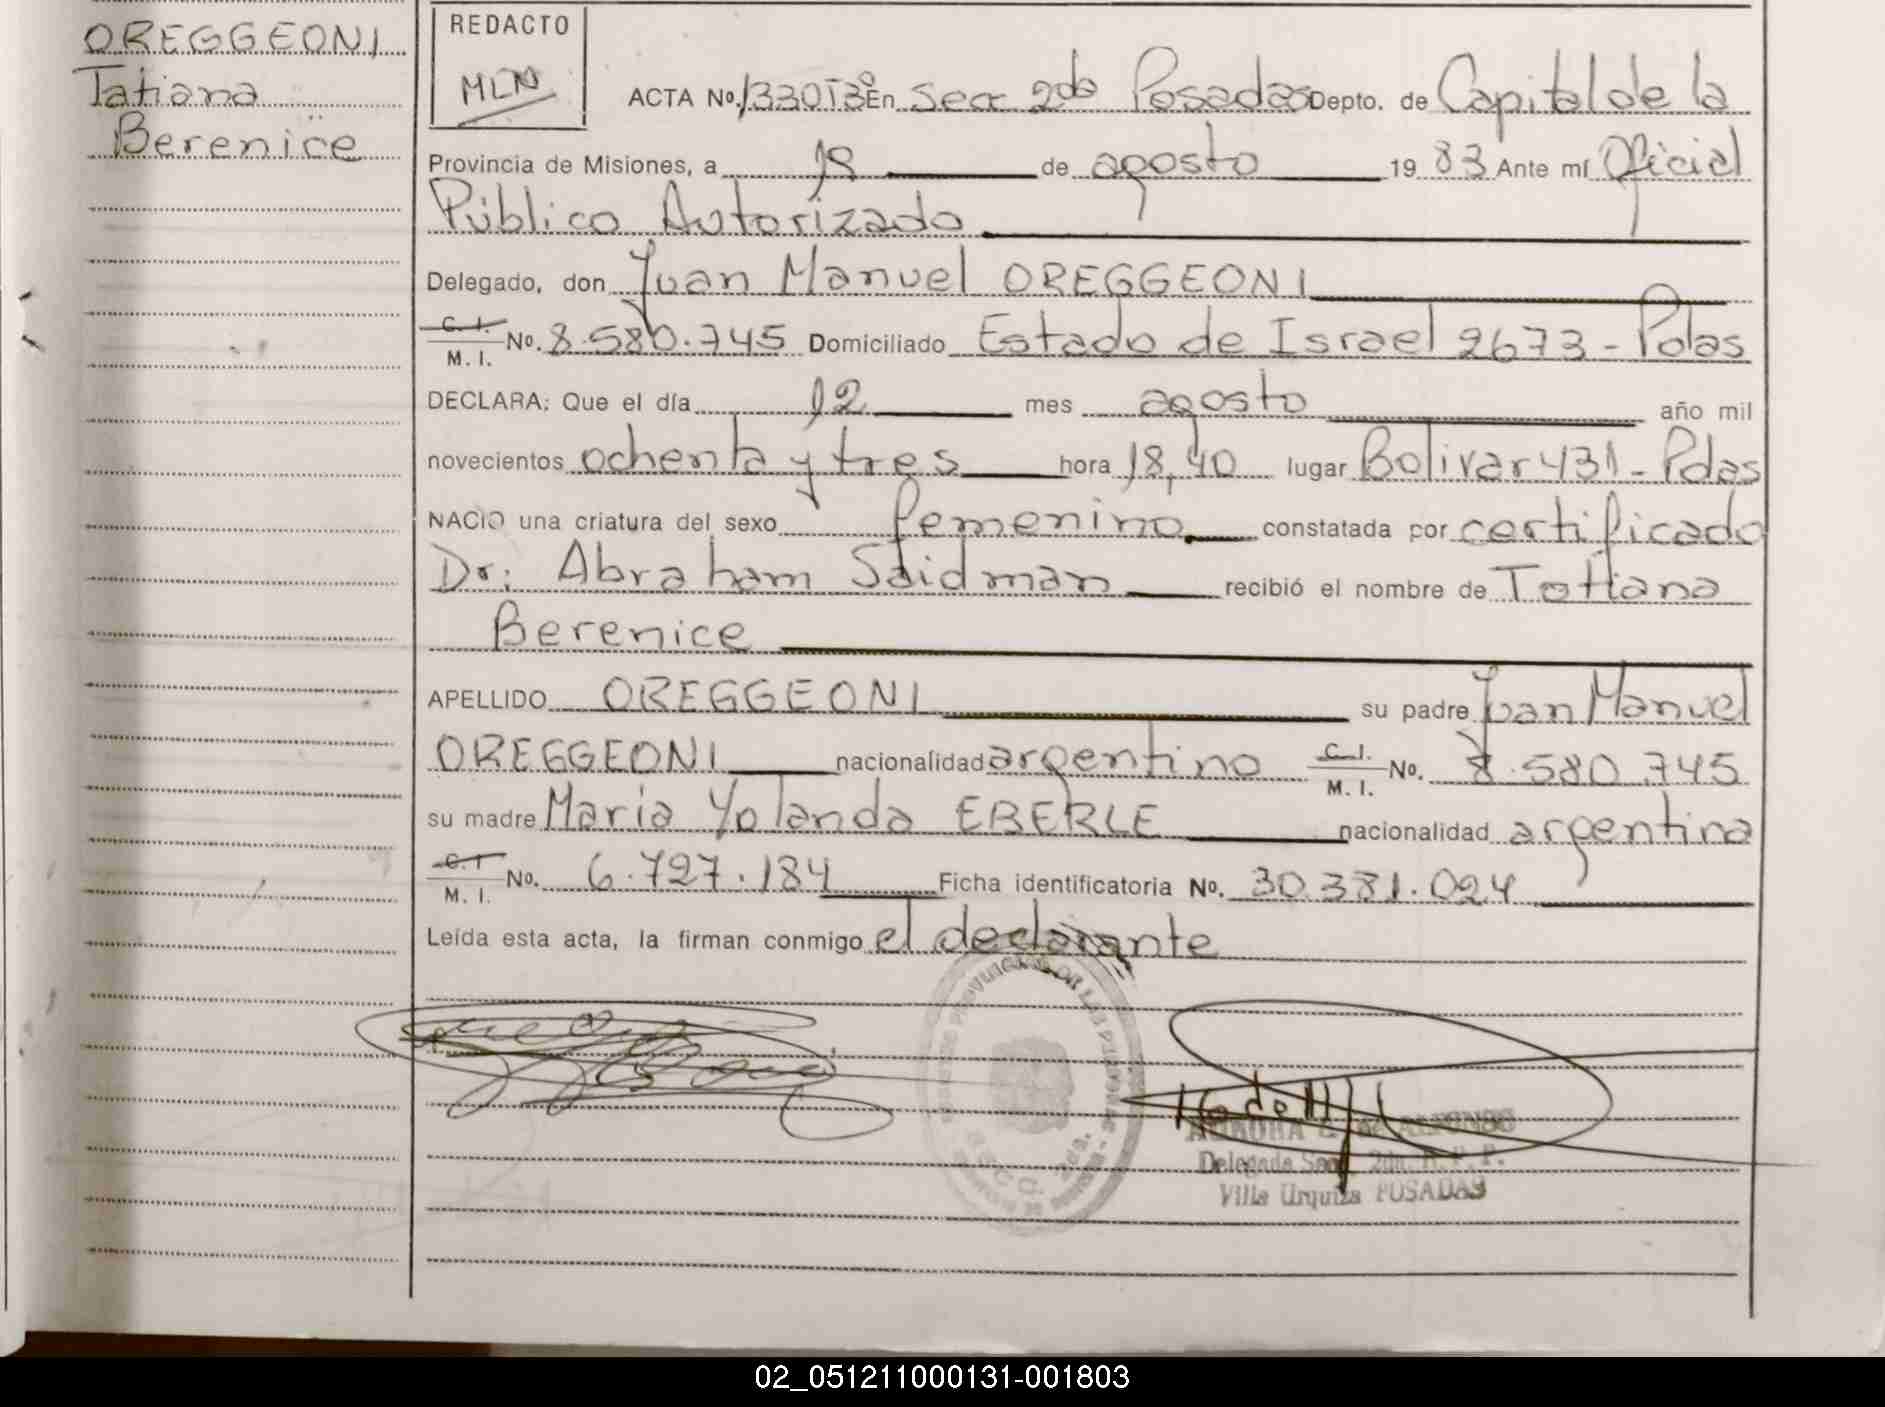 OREGGEONI
Tatiana
Berenice
REDACTO
MLN
ACTA Nº. 1330 Tº 3º En Secc 2da Posadas Depto. de Capital de la
Provincia de Misiones, a 18 de agosto 1983 Ante mí Oficial
Público Autorizado
Delegado, don Juan Manuel OREGGEONI
C. I. M. I. Nº. 8.580.745 Domiciliado Estado de Israel 2673 - Pdas
DECLARA: Que el día 12 mes agosto año mil
novecientos ochenta y tres hora 18,40 lugar Bolivar 431 - Pdas
NACIO una criatura del sexo femenino constatada por certificado
Dr: Abraham Saidman recibió el nombre de Tatiana
Berenice
APELLIDO OREGGEONI su padre Juan Manuel
OREGGEONI nacionalidad argentino C. I. M. I. Nº. 8.580.745
su madre Maria Yolanda EBERLE nacionalidad argentina
C. I M. I. Nº. 6.727.184 Ficha identificatoria Nº. 30.381.024
Leída esta acta, la firman conmigo el declarante
AURORA E. de ALFONSO
Delegada Secc. 2da. R. P. P.
Villa Urquiza POSADAS
02_051211000131-001803